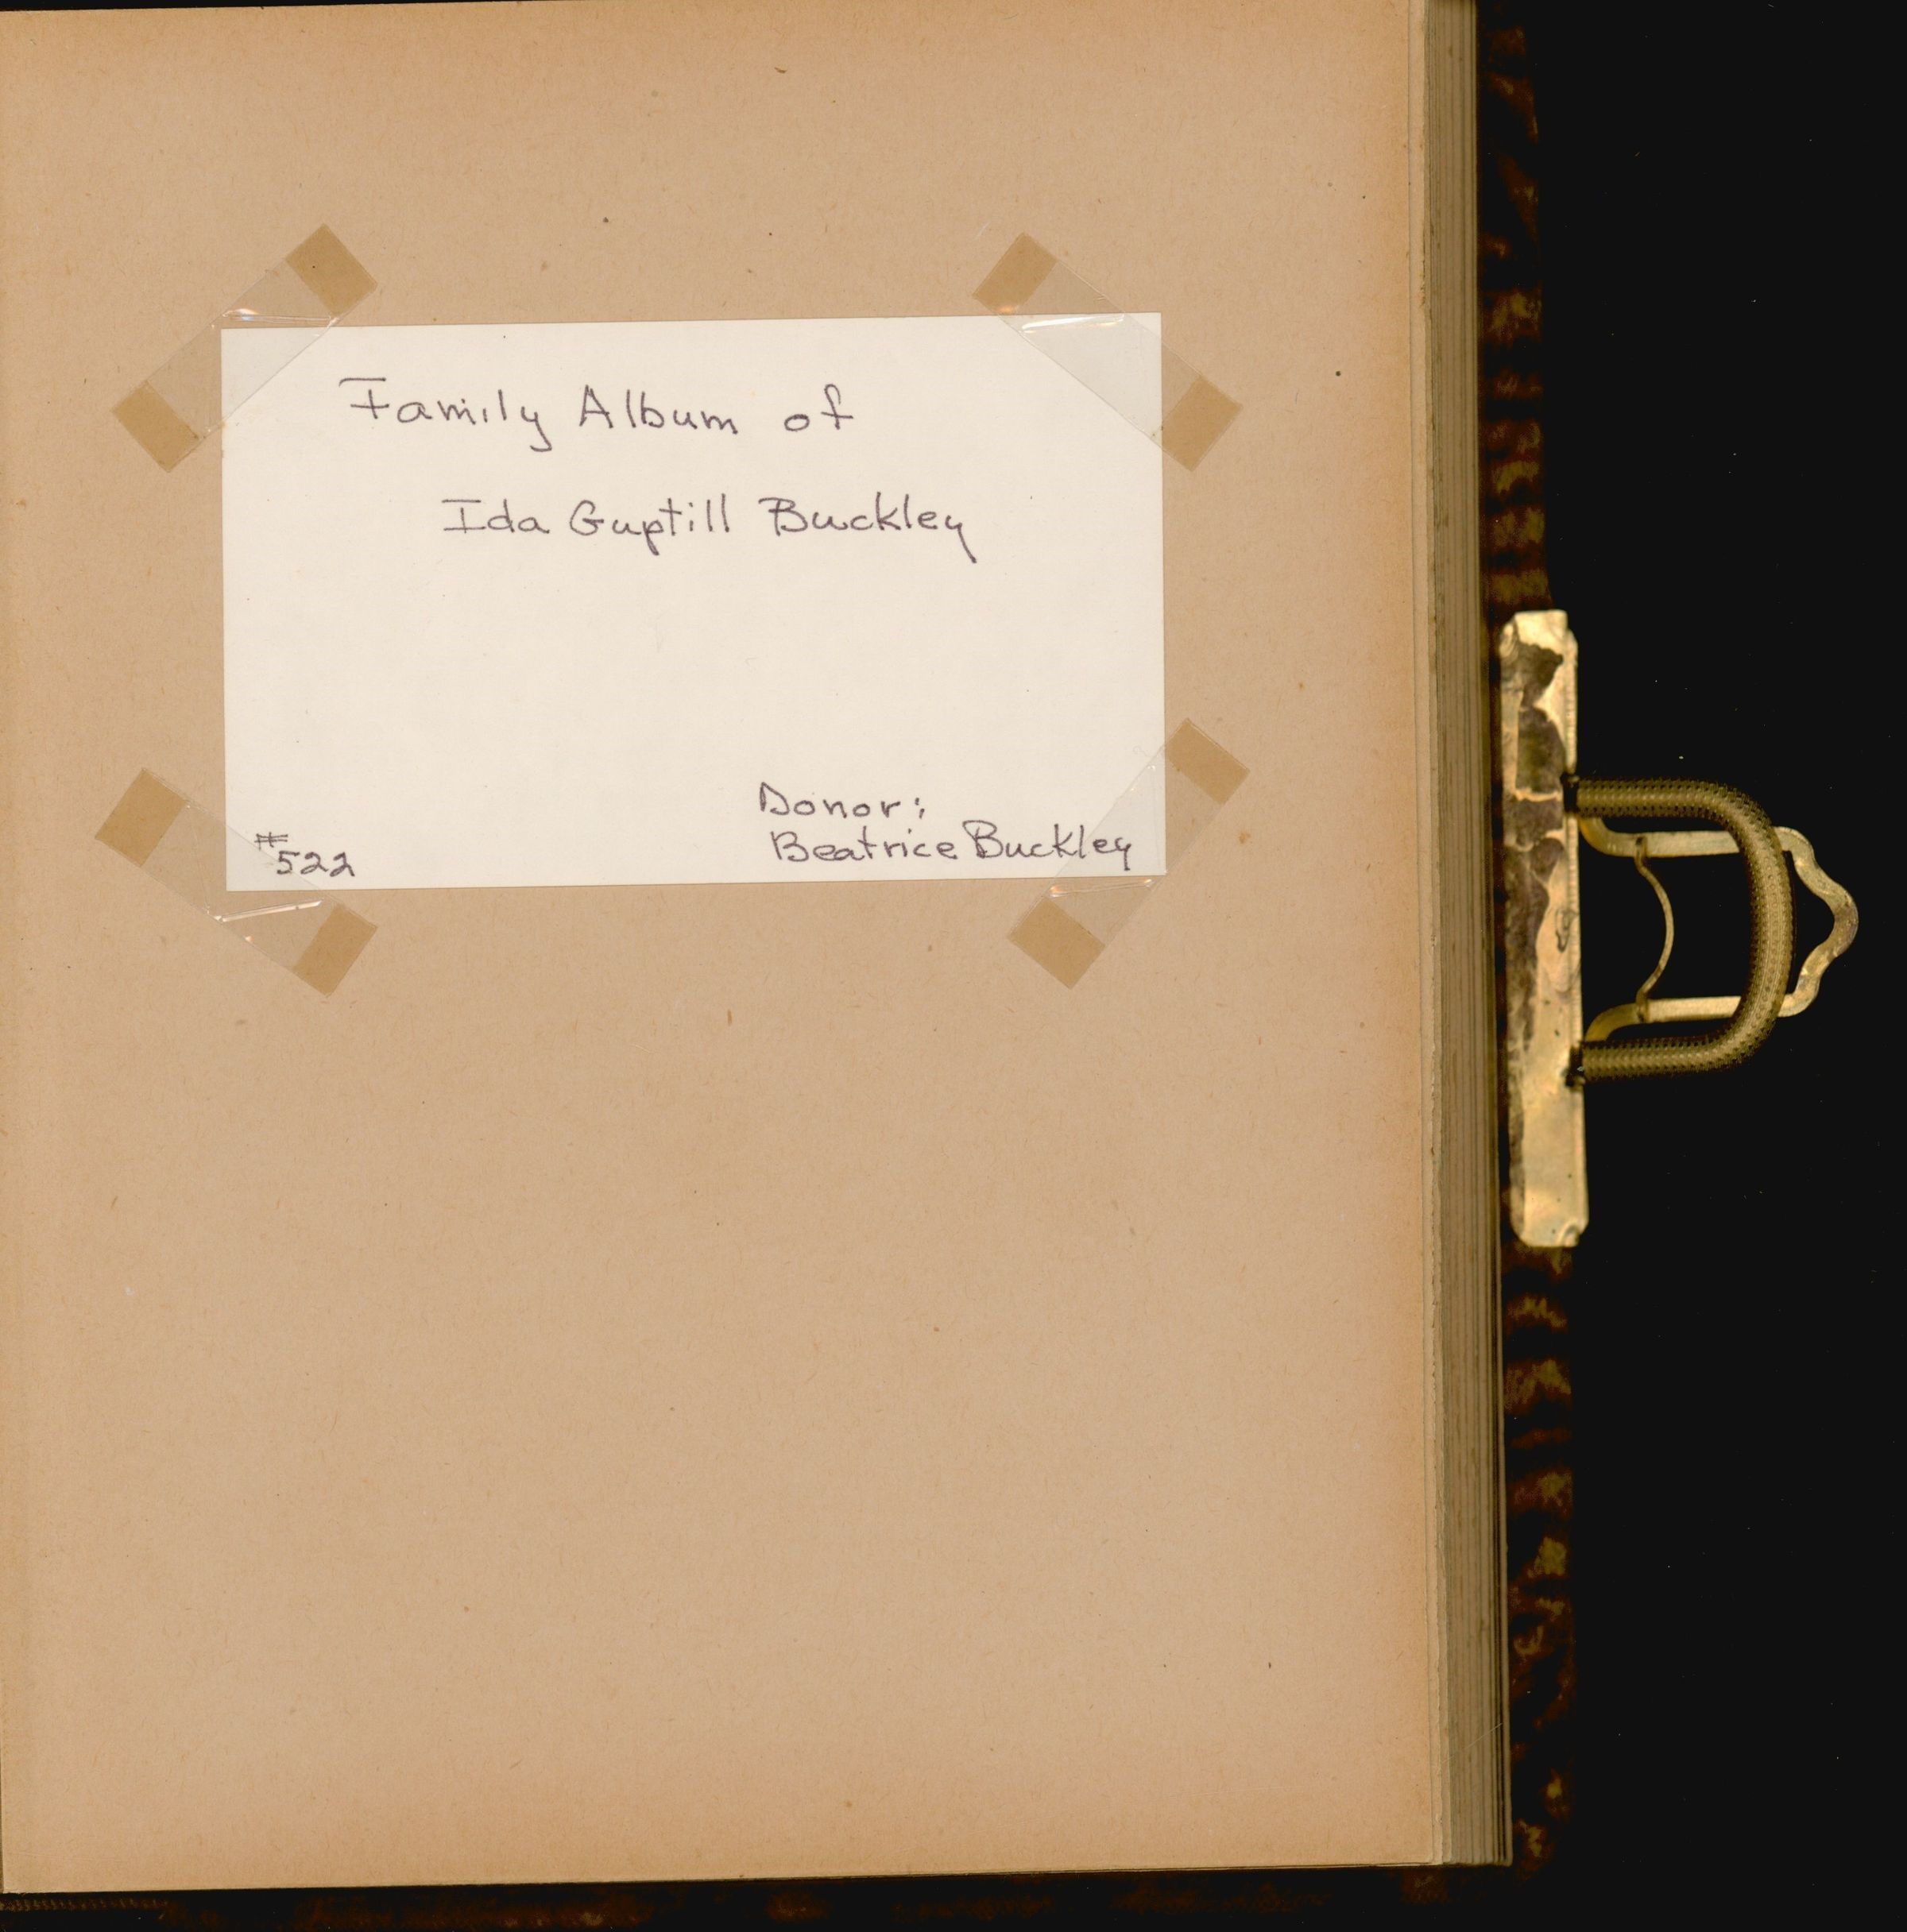 Family Album of
Ida Guptill Buckley
Donor:
Beatrice Buckley
#522